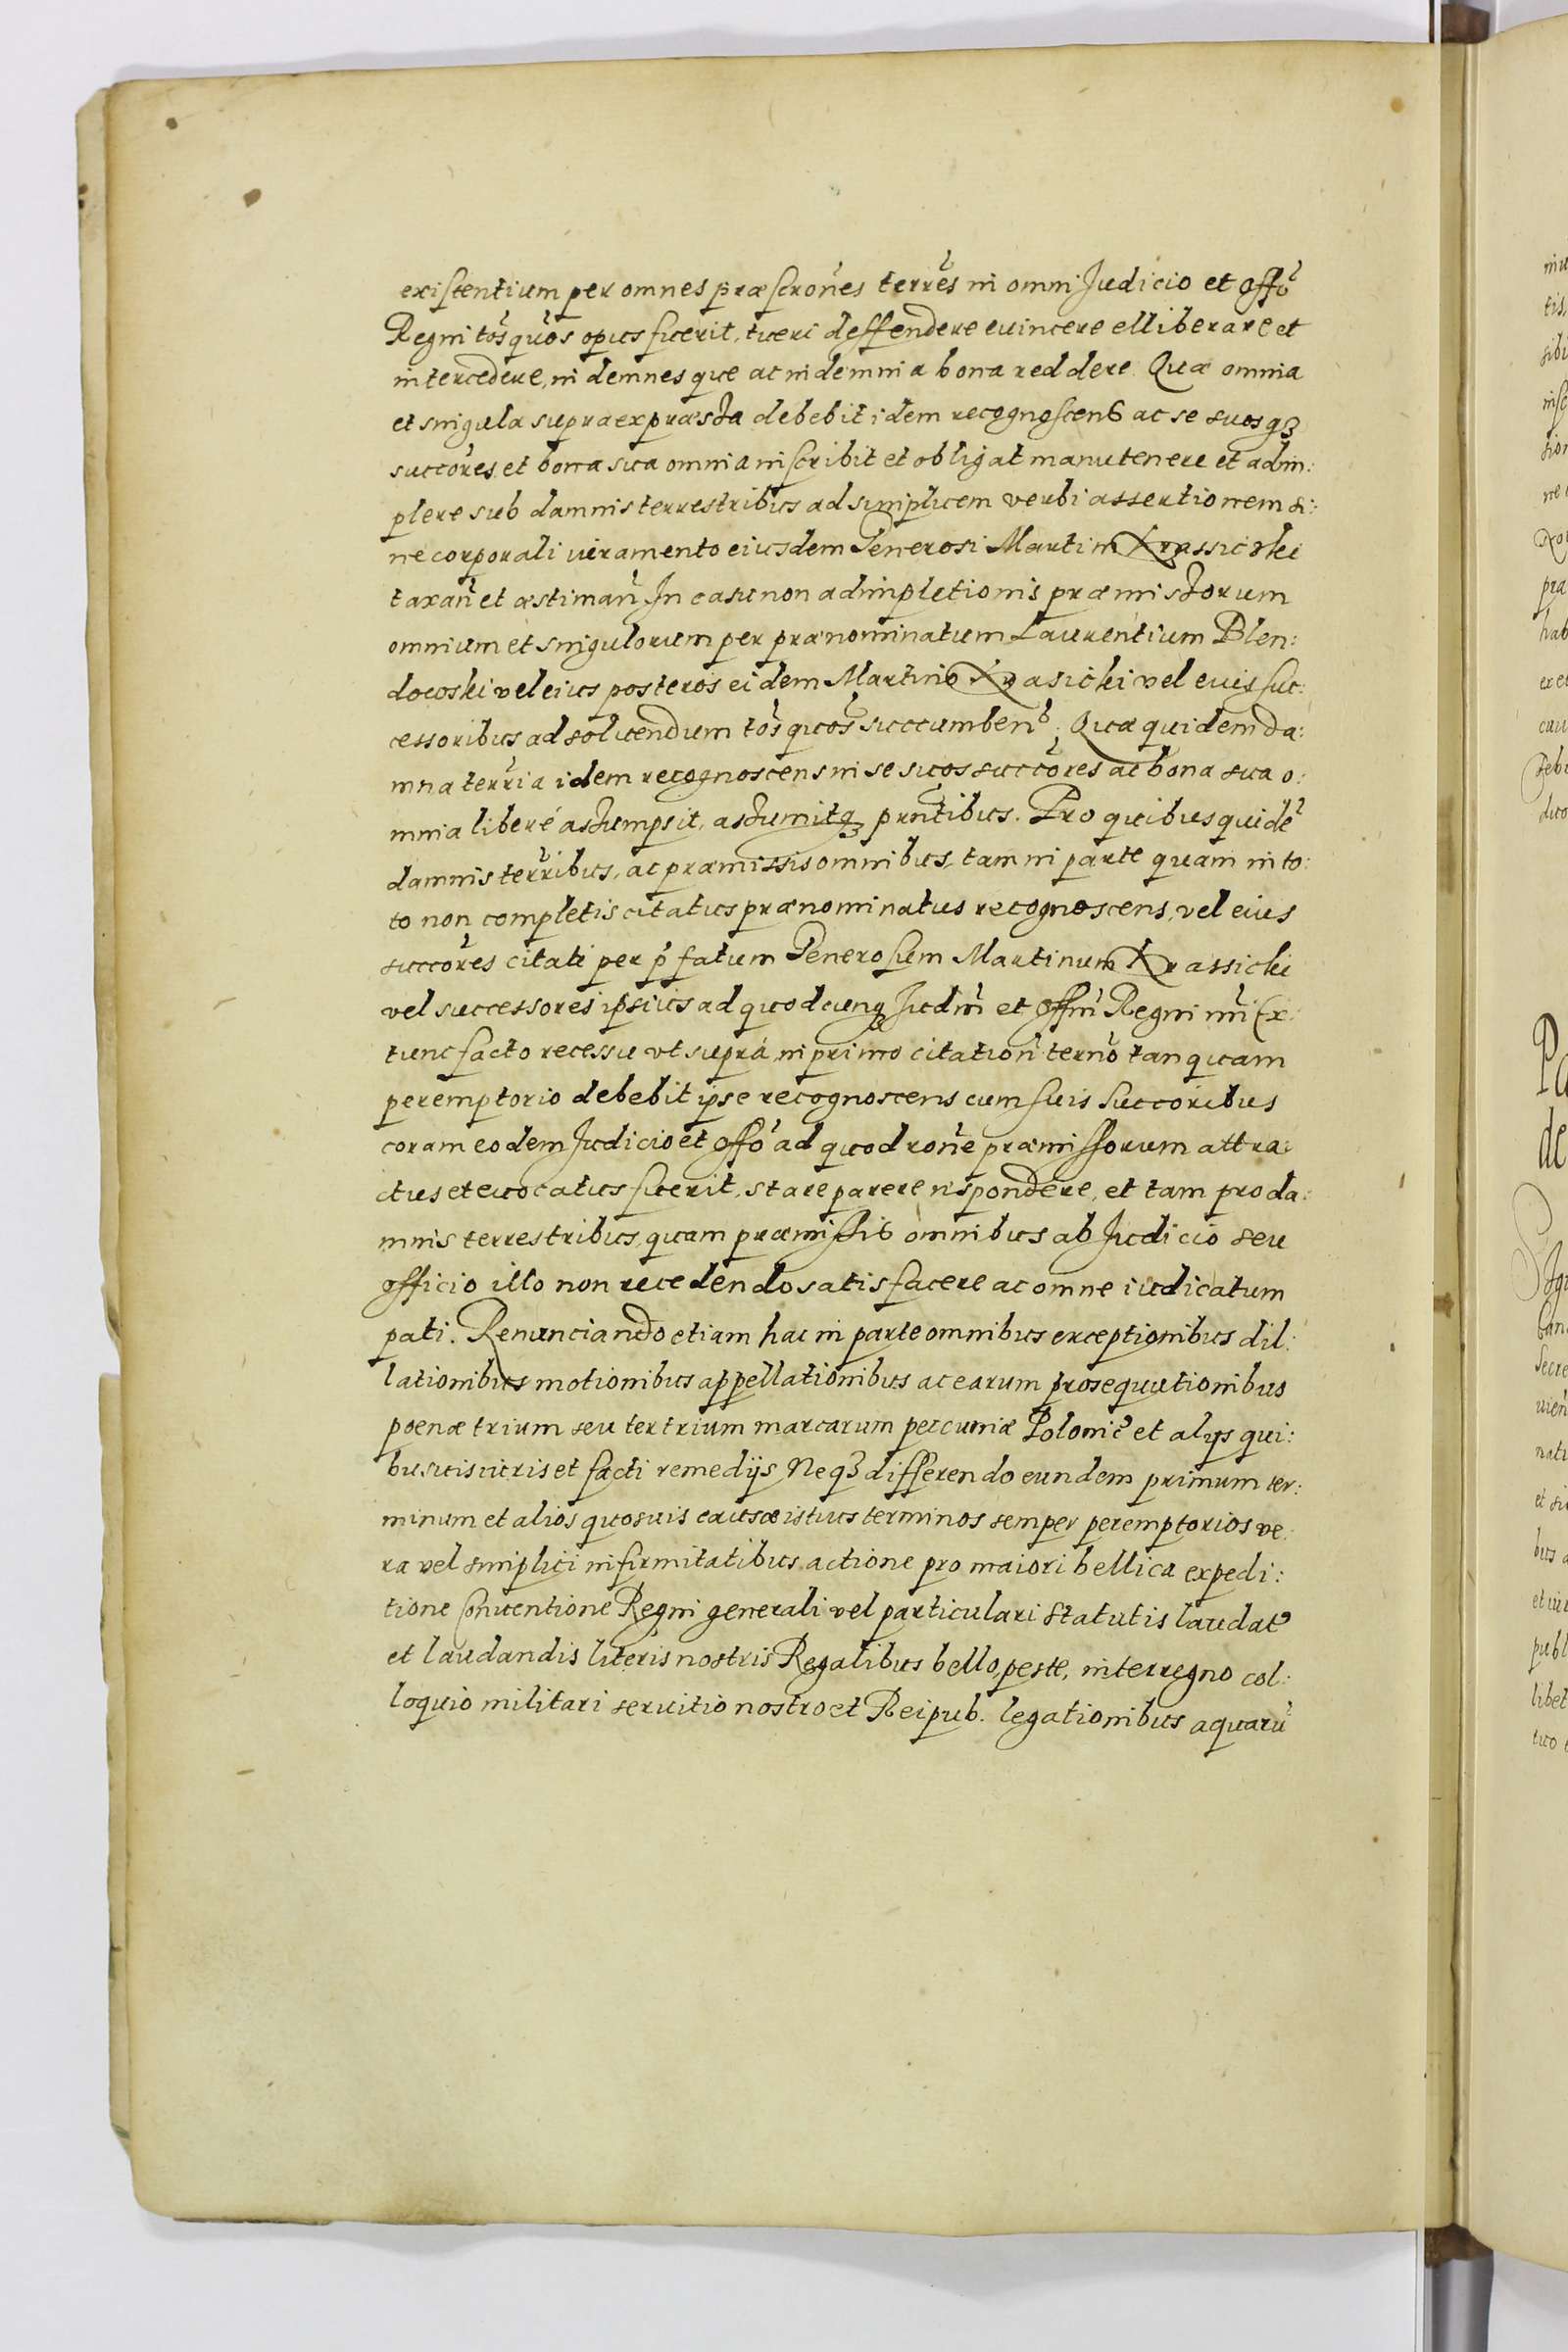 existentium per omnes præscrõnes terrẽs in omni Judicio et Offõ
Regni tõs quõs opus fuerit, tueri deffendere euincere elliberare et
intercedere, indemnes que ac indemnia bona reddere. Quæ omnia
et singula supra expræssa debebit idem recognoscens ac se suosqȝ
succõres et bona sua omnia inscribit et obligat manutenere et adim:
plere sub damnis terrestribus ad simplicem verbi assertionem si:
ne corporali iuramento eiusdem Generosi Martini Krassicki
taxañ et æstimañ. In casu non adimpletionis præmissorum
omnium et singulorum per prænominatum Laurentium Blen:
dowski vel eius posteros eidem Martino Krasicki vel euis suc:
cessoribus ad soluendum tõs quõs succumben̄. Quæ quidem da:
mna terr̃ia idem recognoscens in se suos succõres ac bona sua o:
mnia liberé assumpsit, assumitqȝ pr̃ntibus. Pro quibus quidẽ
damnis terr̃ibus, ac præmissis omnibus, tam in parte quam in to:
to non completis citatus prænominatus recognoscens, vel eius
succõres citati per p̃fatum Generosum Martinum Krassicki
vel successores ipsius ad quodcunqȝ Judim̃ et Offm̃ Regni nr̃i Ex:
tunc facto recessu vt suprá in primo citationĩ ternõ tanquam
peremptorio debebit ipse recognoscens cum suis succoribus
coram eodem Judicio et Offõ ad quod rõne præmissorum attra:
ctus et euocatus fuerit, stare parere rispondere, et tam pro da:
mnis terrestribus, quam præmissis omnibus ab Judicio seu
officio illo non recedendo satisfacere ac omne iudicatum
pati. Renunciando etiam hac in parte omnibus exceptionibus dil:
lationibus motionibus appellationibus ac earum prosequutionibus
poenæ trium seu ter trium marcarum pecuniæ Poloniĉ et alys qui:
busuis iuris et facti remedijs Neqȝ differendo eundem primum ter:
minum et alios quosuis causæ istius terminos semper peremptorios ve:
ra vel simplici infirmitatibus actione pro maiori bellica expedi:
tione Conuentione Regni generali vel particulari Statutis laudat̃
et laudandis literis nostris Regalibus bello, peste, interregno col:
loquio militari seruitio nostro et Reipub. legationibus aquarũ